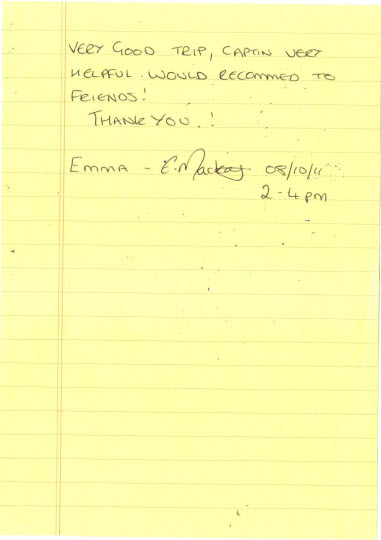 VERY GOOD TRIP, CAPTIN VERY
HELPFUL. WOULD RECOMMED TO
FRIENDS!
THANK YOU.!
EMMA - E.Mackay 08/10/11
2-4pm